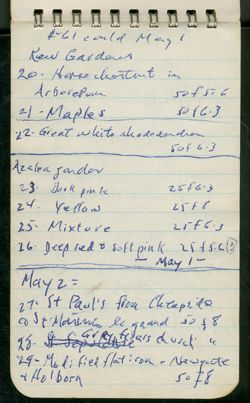 Kew Gardens
20 - Horse chestnut in
Arboretum 50 f 5.6
21 - Maples 50 f 6.3
22 - Great white rhododendron
50 f 6.3
Azalea garden
23 - Dark pink 25 f 6.3
24 - Yellow 25 f 8
25 - Mixture 25 f 6.3
26 - Deep red & soft pink 25 f 5.6 (?)
- May 1 -
May 2 =
27 - St Paul's from Cheapside
St le grand 50 f 8
28 -
29 - Modified flat iron - Newgate
& Holborn 50 f 8